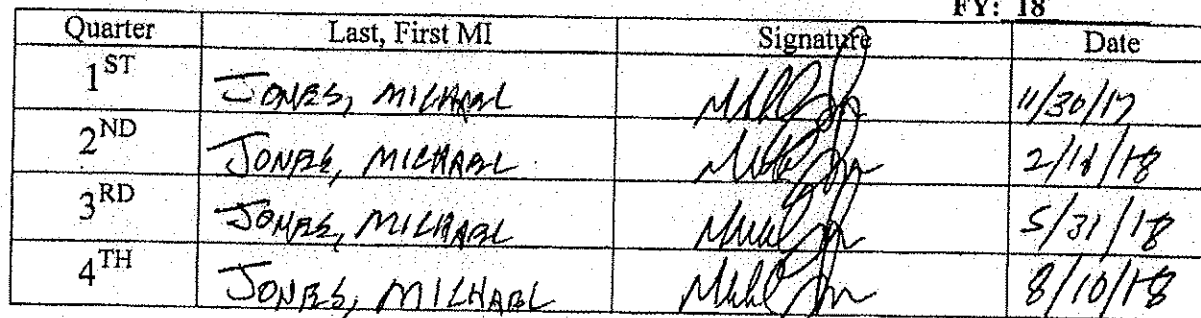 FY: 18
Quarter Last, First MI Signature Date
1ST JONES, MICHAEL 11/30/17
2ND JONES, MICHAEL 2/18
3RD JONES, MICHAEL 5/31/18
4TH JONES, MICHAEL 8/10/18